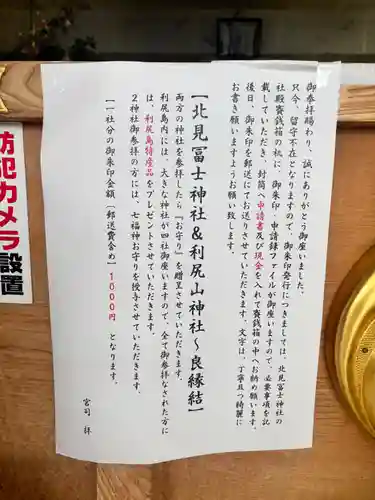 御参拝賜わり、誠にありがとう御座いました。
只今、留守不在となりますので、御朱印発行につきましては、北見冨士神社の
社殿賽銭箱の杭に、御朱印・申請録ファイルが御座いますので、必要事項を記
載していただき、封筒へ申請書及び現金を入れて賽銭箱の中へお納め願います。
後日、御朱印を郵送にてお送りさせていただきます。文字は、丁寧且つ綺麗に
お書き願いますようお願い致します。
【北見冨士神社&利尻山神社～良縁結】
両方の神社を参拝したら『お守り』を贈呈させていただきます。
利尻島内には、大きな神社が四社御座いますので、全て御参拝なされた方に
は、利尻島特産品をプレゼントさせていただきます。
2神社御参拝の方には、七福神お守りを授与させていただきます。
【一社分の御朱印金額(郵送費含め)1000円 となります。
宮司 拝
防犯カメラ設置